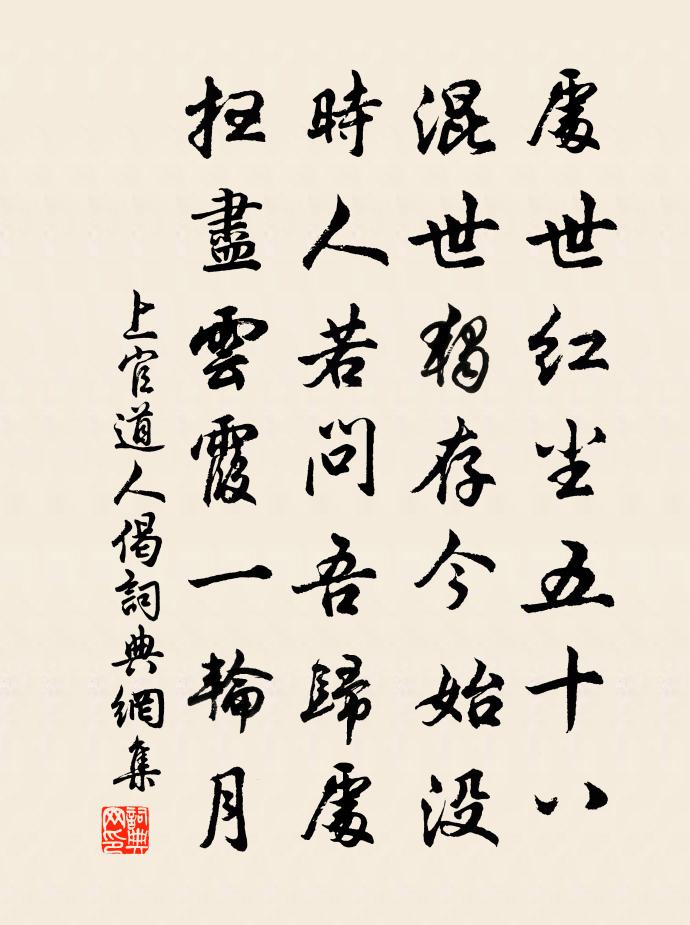 處世红尘五十八
混世獨存今始没
時人若問吾歸處
扫盡雲霞一輪月
上官道人偈詞典網集
詞典網印